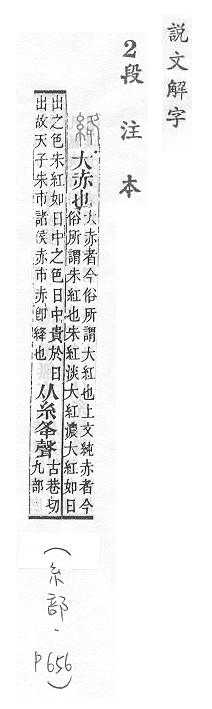 說文解字
2段注本
絳
大赤也
大赤者今俗所謂大紅也上文純赤者今
俗所謂朱紅也朱紅淡大紅濃大紅如日
出之色朱紅如日中之色日中貴於日
出故天子朱巿諸侯赤巿赤卽絳也
从糸夅聲
古巷切
九部
(糸部.P656)